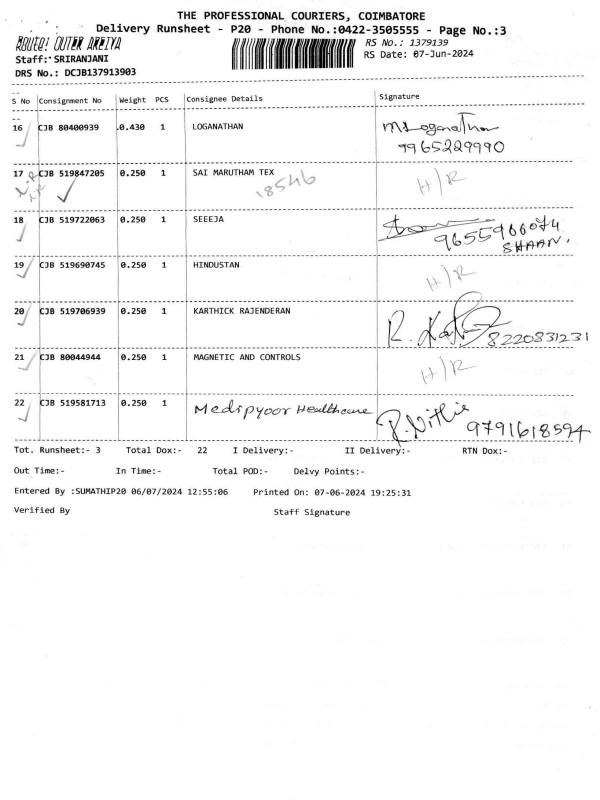 THE PROFESSIONAL COURIERS, COIMBATORE
Delivery Runsheet - P20 - Phone No.:0422-3505555 - Page No.:3
Route: OUTER AREIYA
RS No.: 1379139
Staff: SRIRANJANI
RS Date: 07-Jun-2024
DRS No.: DCJB137913903
S No Consignment No Weight PCS Consignee Details Signature
16 CJB 80400939 0.430 1 LOGANATHAN M. Loganathan
9965229990
17 CJB 519847205 0.250 1 SAI MARUTHAM TEX H/R
18546
18 CJB 519722063 0.250 1 SEEEJA
9655966074
SHAAN.
19 CJB 519690745 0.250 1 HINDUSTAN H/R
20 CJB 519706939 0.250 1 KARTHICK RAJENDERAN
8220831231
21 CJB 80044944 0.250 1 MAGNETIC AND CONTROLS H/R
22 CJB 519581713 0.250 1 Medipyoor Healthcare R. Nithie
9791618594
Tot. Runsheet:- 3 Total Dox:- 22 I Delivery:- II Delivery:- RTN Dox:-
Out Time:- In Time:- Total POD:- Delvy Points:-
Entered By :SUMATHIP20 06/07/2024 12:55:06 Printed On: 07-06-2024 19:25:31
Verified By Staff Signature